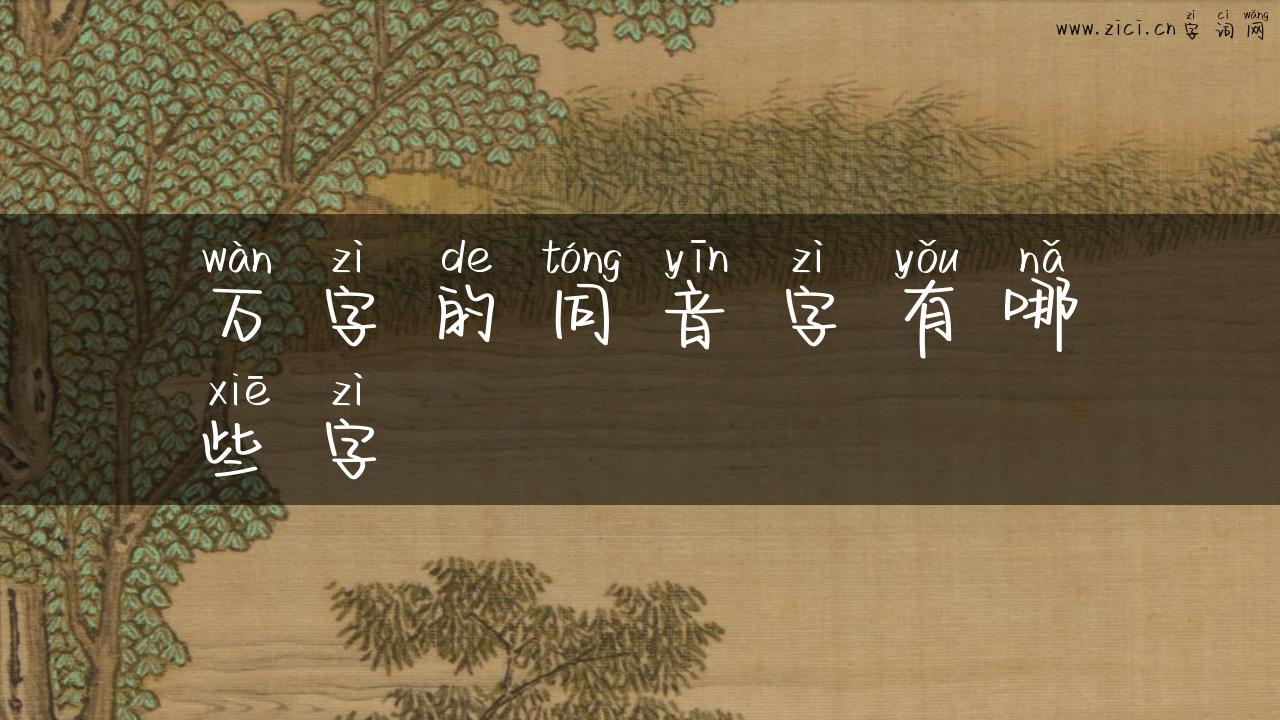 zì cí wǎng
www.zici.cn 字 词 网
wàn zì de tóng yīn zì yǒu nǎ
万 字 的 同 音 字 有 哪
xiē zì
些 字